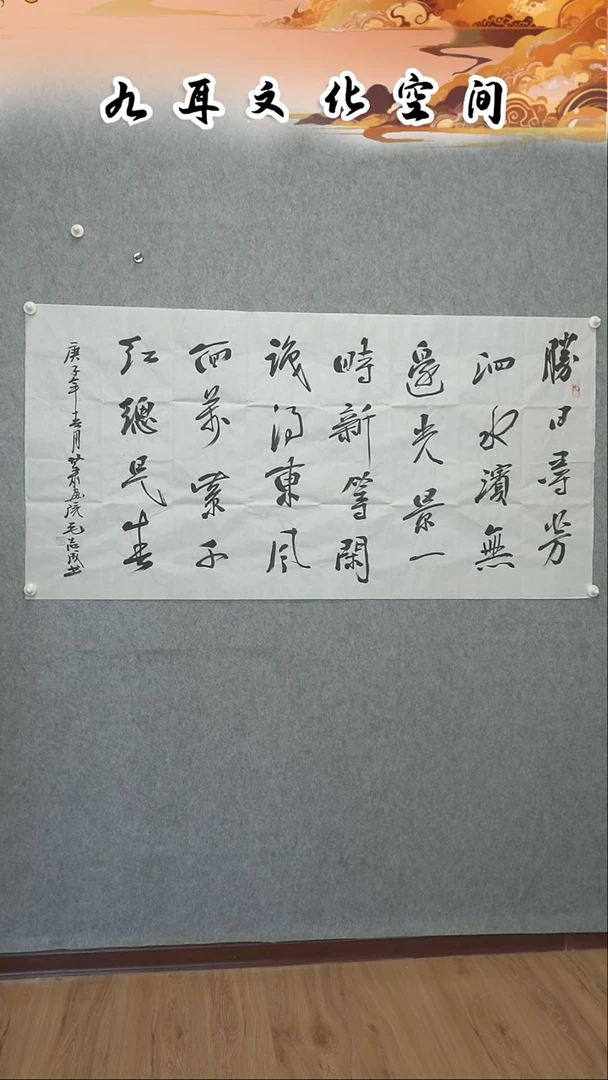 九耳文化空间
勝日尋芳
泗水濱無
邊光景一
時新等閑
識得東風
面萬紫千
紅總是春
庚子年春月甘肃画院毛志成书